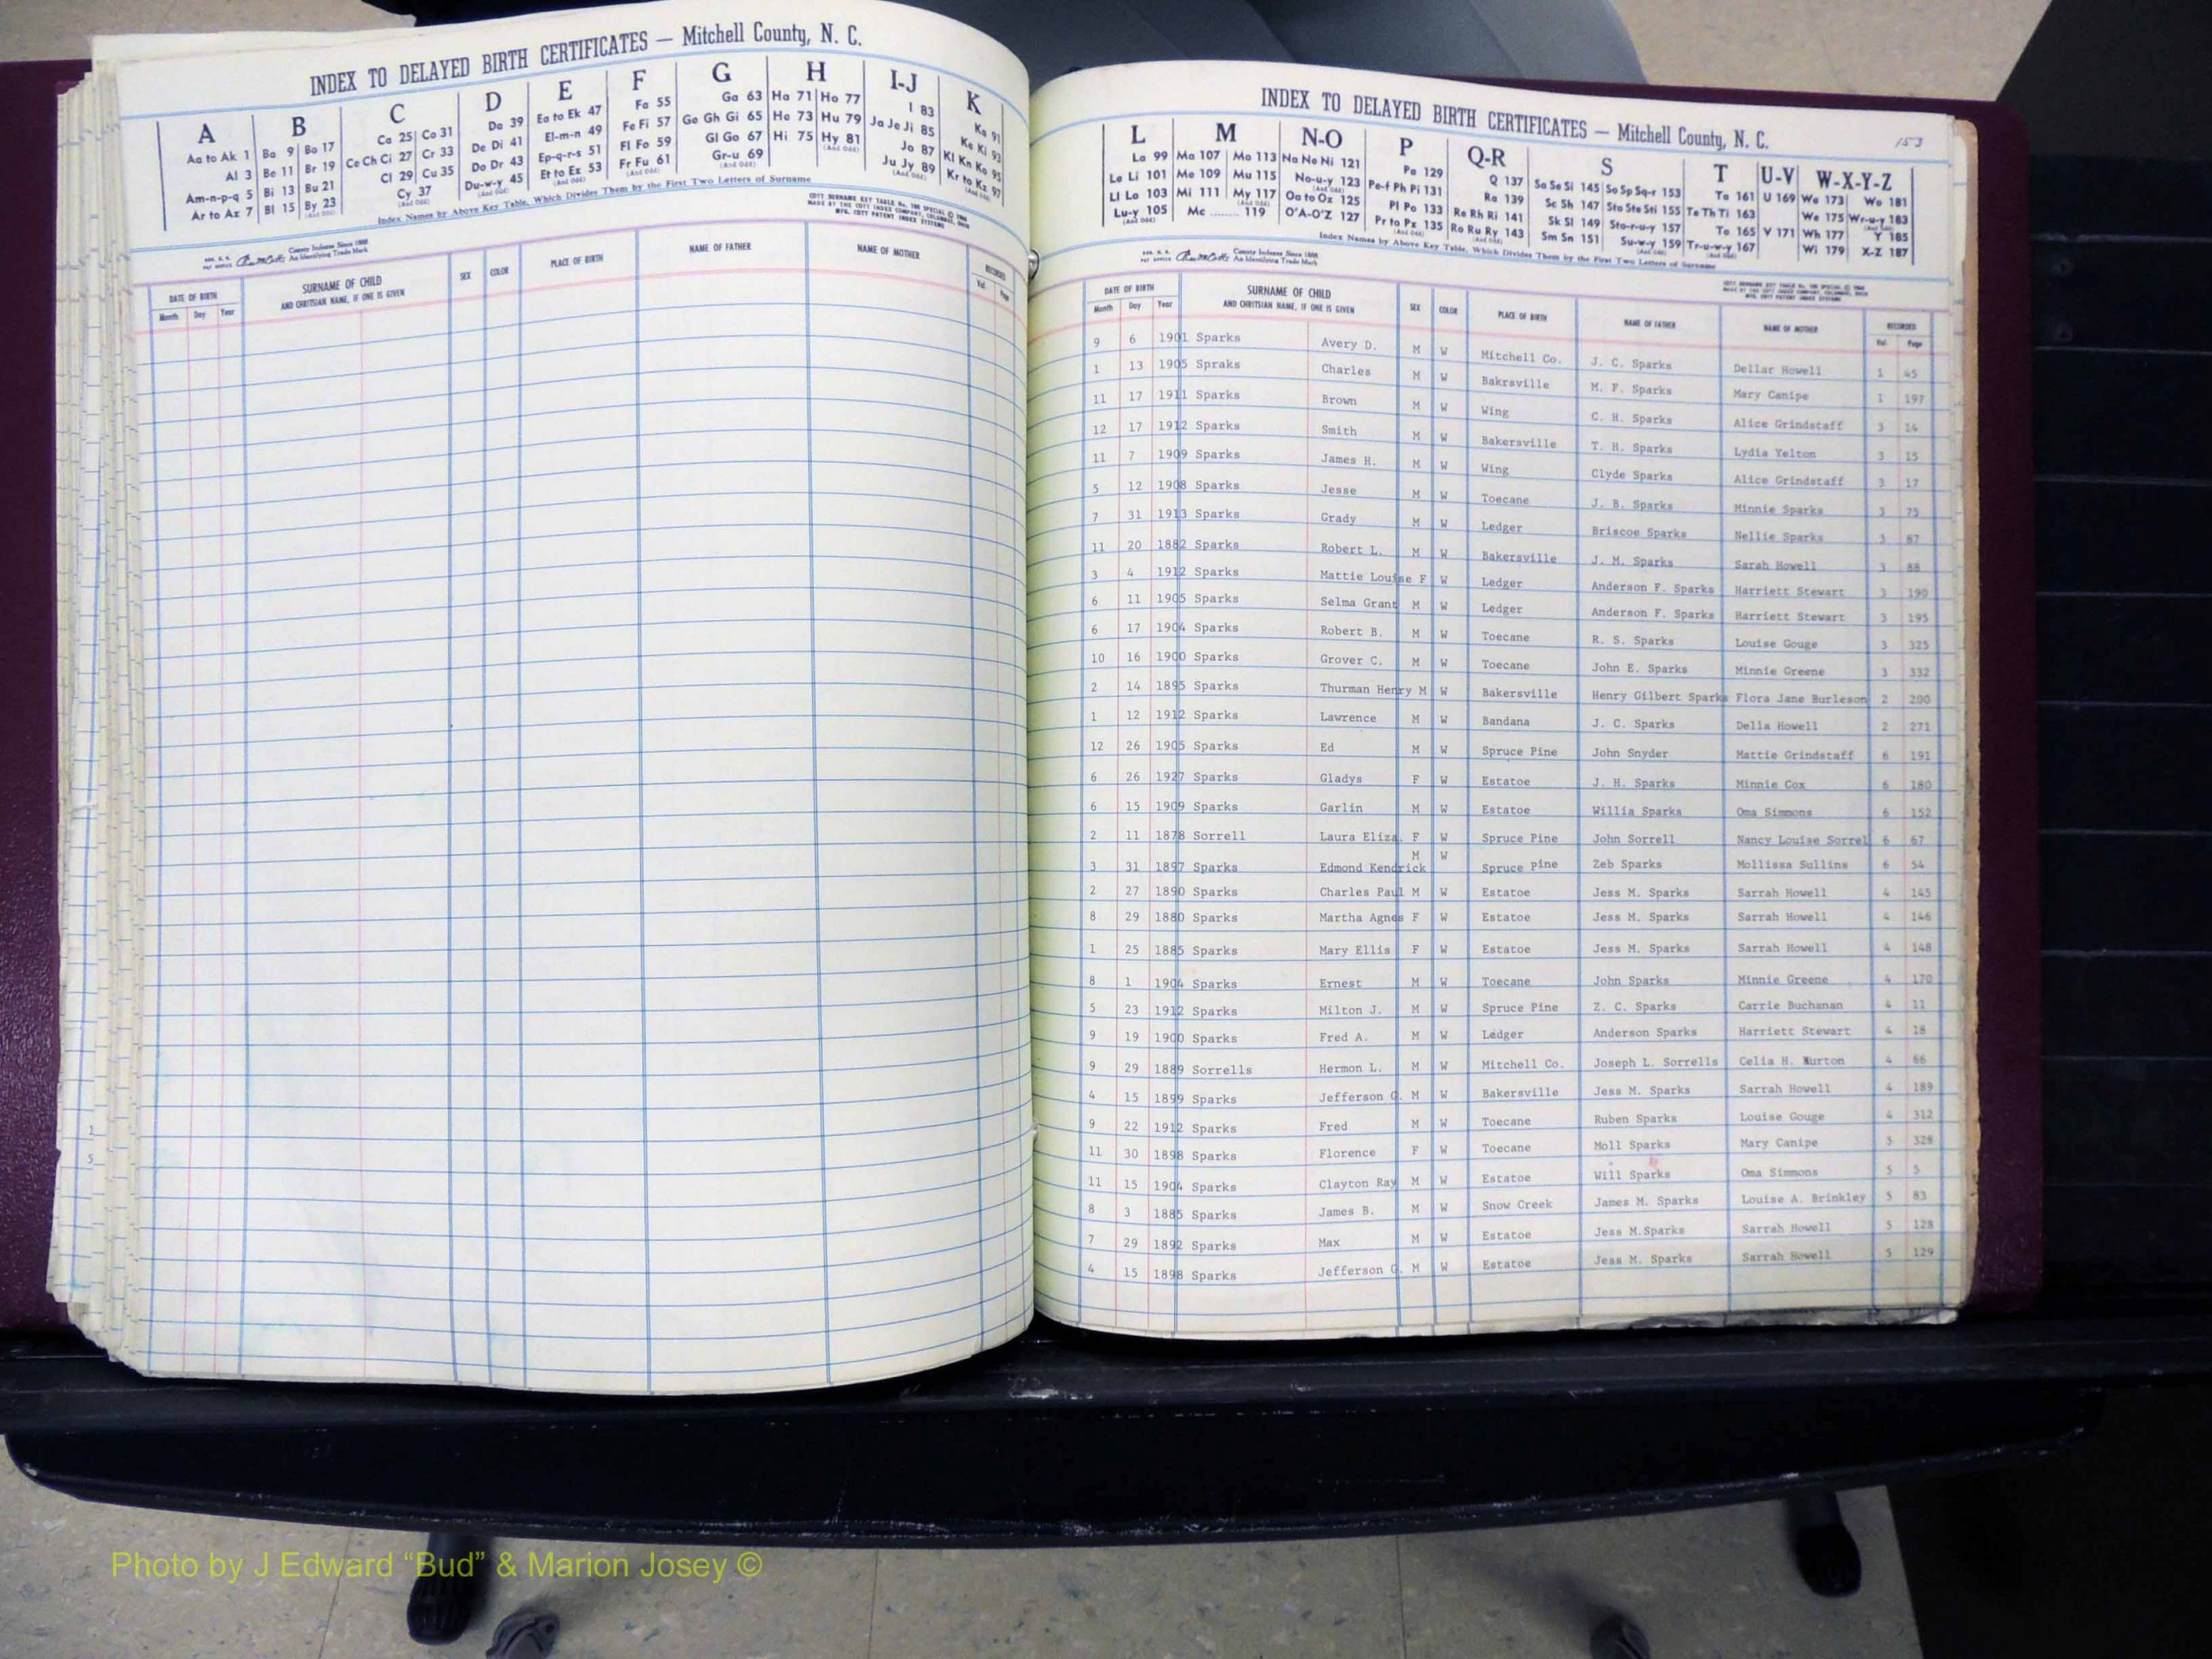 INDEX TO DELAYED BIRTH CERTIFICATES — Mitchell County, N. C.
A B C D E F G H I-J K
Aa to Ak 1 Ba 9 Bo 17 Ca 25 Co 31 Da 39 Ea to Ek 47 Fa 55 Ga 63 Ha 71 Ho 77 I 83 Ka 91
Al 3 Be 11 Br 19 Ce Ch Ci 27 Cr 33 De Di 41 El-m-n 49 Fe Fi 57 Ge Gh Gi 65 He 73 Hu 79 Ja Je Ji 85 Ke Ki 93
Am-n-p-q 5 Bi 13 Bu 21 Cl 29 Cu 35 Do Dr 43 Ep-q-r-s 51 Fl Fo 59 Gl Go 67 Hi 75 Hy 81 Jo 87 Kl Kn Ko 95
Ar to Az 7 Bl 15 By 23 Cy 37 Du-w-y 45 Et to Ez 53 Fr Fu 61 Gr-u 69 Ju Jy 89 Kr to Kz 97
Index Names by Above Key Table, Which Divides Them by the First Two Letters of Surname
County Indexes Since 1888
An Identifying Trade Mark
DATE OF BIRTH SURNAME OF CHILD SEX COLOR PLACE OF BIRTH NAME OF FATHER NAME OF MOTHER RECORDED
Month Day Year AND CHRITSIAN NAME, IF ONE IS GIVEN Vol. Page
INDEX TO DELAYED BIRTH CERTIFICATES — Mitchell County, N. C.
153
L M N-O P Q-R S T U-V W-X-Y-Z
La 99 Ma 107 Mo 113 Na Ne Ni 121 Pa 129 Q 137 Sa Se Si 145 So Sp Sq-r 153 Ta 161 U 169 Wa 173 Wo 181
Le Li 101 Me 109 Mu 115 No-u-y 123 Pe-f Ph Pi 131 Ra 139 Sc Sh 147 Sta Ste Sti 155 Te Th Ti 163 We 175 Wr-u-y 183
Ll Lo 103 Mi 111 My 117 Oa to Oz 125 Pl Po 133 Re Rh Ri 141 Sk Sl 149 Sto-r-u-y 157 To 165 V 171 Wh 177 Y 185
Lu-y 105 Mc ........ 119 O'A-O'Z 127 Pr to Pz 135 Ro Ru Ry 143 Sm Sn 151 Su-w-y 159 Tr-u-w-y 167 Wi 179 X-Z 187
Index Names by Above Key Table, Which Divides Them by the First Two Letters of Surname
County Indexes Since 1888
An Identifying Trade Mark
DATE OF BIRTH SURNAME OF CHILD SEX COLOR PLACE OF BIRTH NAME OF FATHER NAME OF MOTHER RECORDED
Month Day Year AND CHRITSIAN NAME, IF ONE IS GIVEN Vol. Page
9 6 1901 Sparks Avery D. M W Mitchell Co. J. C. Sparks Dellar Howell 1 45
1 13 1905 Spraks Charles M W Bakrsville M. F. Sparks Mary Canipe 1 197
11 17 1911 Sparks Brown M W Wing C. H. Sparks Alice Grindstaff 3 14
12 17 1912 Sparks Smith M W Bakersville T. H. Sparks Lydia Yelton 3 15
11 7 1909 Sparks James H. M W Wing Clyde Sparks Alice Grindstaff 3 17
5 12 1908 Sparks Jesse M W Toecane J. B. Sparks Minnie Sparks 3 75
7 31 1913 Sparks Grady M W Ledger Briscoe Sparks Nellie Sparks 3 87
11 20 1882 Sparks Robert L. M W Bakersville J. M. Sparks Sarah Howell 3 88
3 4 1912 Sparks Mattie Louise F W Ledger Anderson F. Sparks Harriett Stewart 3 190
6 11 1905 Sparks Selma Grant M W Ledger Anderson F. Sparks Harriett Stewart 3 195
6 17 1904 Sparks Robert B. M W Toecane R. S. Sparks Louise Gouge 3 325
10 16 1900 Sparks Grover C. M W Toecane John E. Sparks Minnie Greene 3 332
2 14 1895 Sparks Thurman Henry M W Bakersville Henry Gilbert Sparks Flora Jane Burleson 2 200
1 12 1912 Sparks Lawrence M W Bandana J. C. Sparks Della Howell 2 271
12 26 1905 Sparks Ed M W Spruce Pine John Snyder Mattie Grindstaff 6 191
6 26 1927 Sparks Gladys F W Estatoe J. H. Sparks Minnie Cox 6 180
6 15 1909 Sparks Garlin M W Estatoe Willia Sparks Oma Simmons 6 152
2 11 1878 Sorrell Laura Eliza. F W Spruce Pine John Sorrell Nancy Louise Sorrel 6 67
3 31 1897 Sparks Edmond Kendrick M W Spruce Pine Zeb Sparks Mollissa Sullins 6 54
2 27 1890 Sparks Charles Paul M W Estatoe Jess M. Sparks Sarrah Howell 4 145
8 29 1880 Sparks Martha Agnes F W Estatoe Jess M. Sparks Sarrah Howell 4 146
1 25 1885 Sparks Mary Ellis F W Estatoe Jess M. Sparks Sarrah Howell 4 148
8 1 1904 Sparks Ernest M W Toecane John Sparks Minnie Greene 4 170
5 23 1912 Sparks Milton J. M W Spruce Pine Z. C. Sparks Carrie Buchanan 4 11
9 19 1900 Sparks Fred A. M W Ledger Anderson Sparks Harriett Stewart 4 18
9 29 1889 Sorrells Hermon L. M W Mitchell Co. Joseph L. Sorrells Celia H. 4 66
4 15 1899 Sparks Jefferson G. M W Bakersville Jess M. Sparks Sarrah Howell 4 189
9 22 1912 Sparks Fred M W Toecane Ruben Sparks Louise Gouge 4 312
11 30 1898 Sparks Florence F W Toecane Moll Sparks Mary Canipe 5 328
11 15 1904 Sparks Clayton Ray M W Estatoe Will Sparks Oma Simmons 5 5
8 3 1885 Sparks James B. M W Snow Creek James M. Sparks Louise A. Brinkley 5 83
7 29 1892 Sparks Max M W Estatoe Jess M.Sparks Sarrah Howell 5 128
4 15 1898 Sparks Jefferson G. M W Estatoe Jess M. Sparks Sarrah Howell 5 129
Photo by J Edward “Bud” & Marion Josey ©